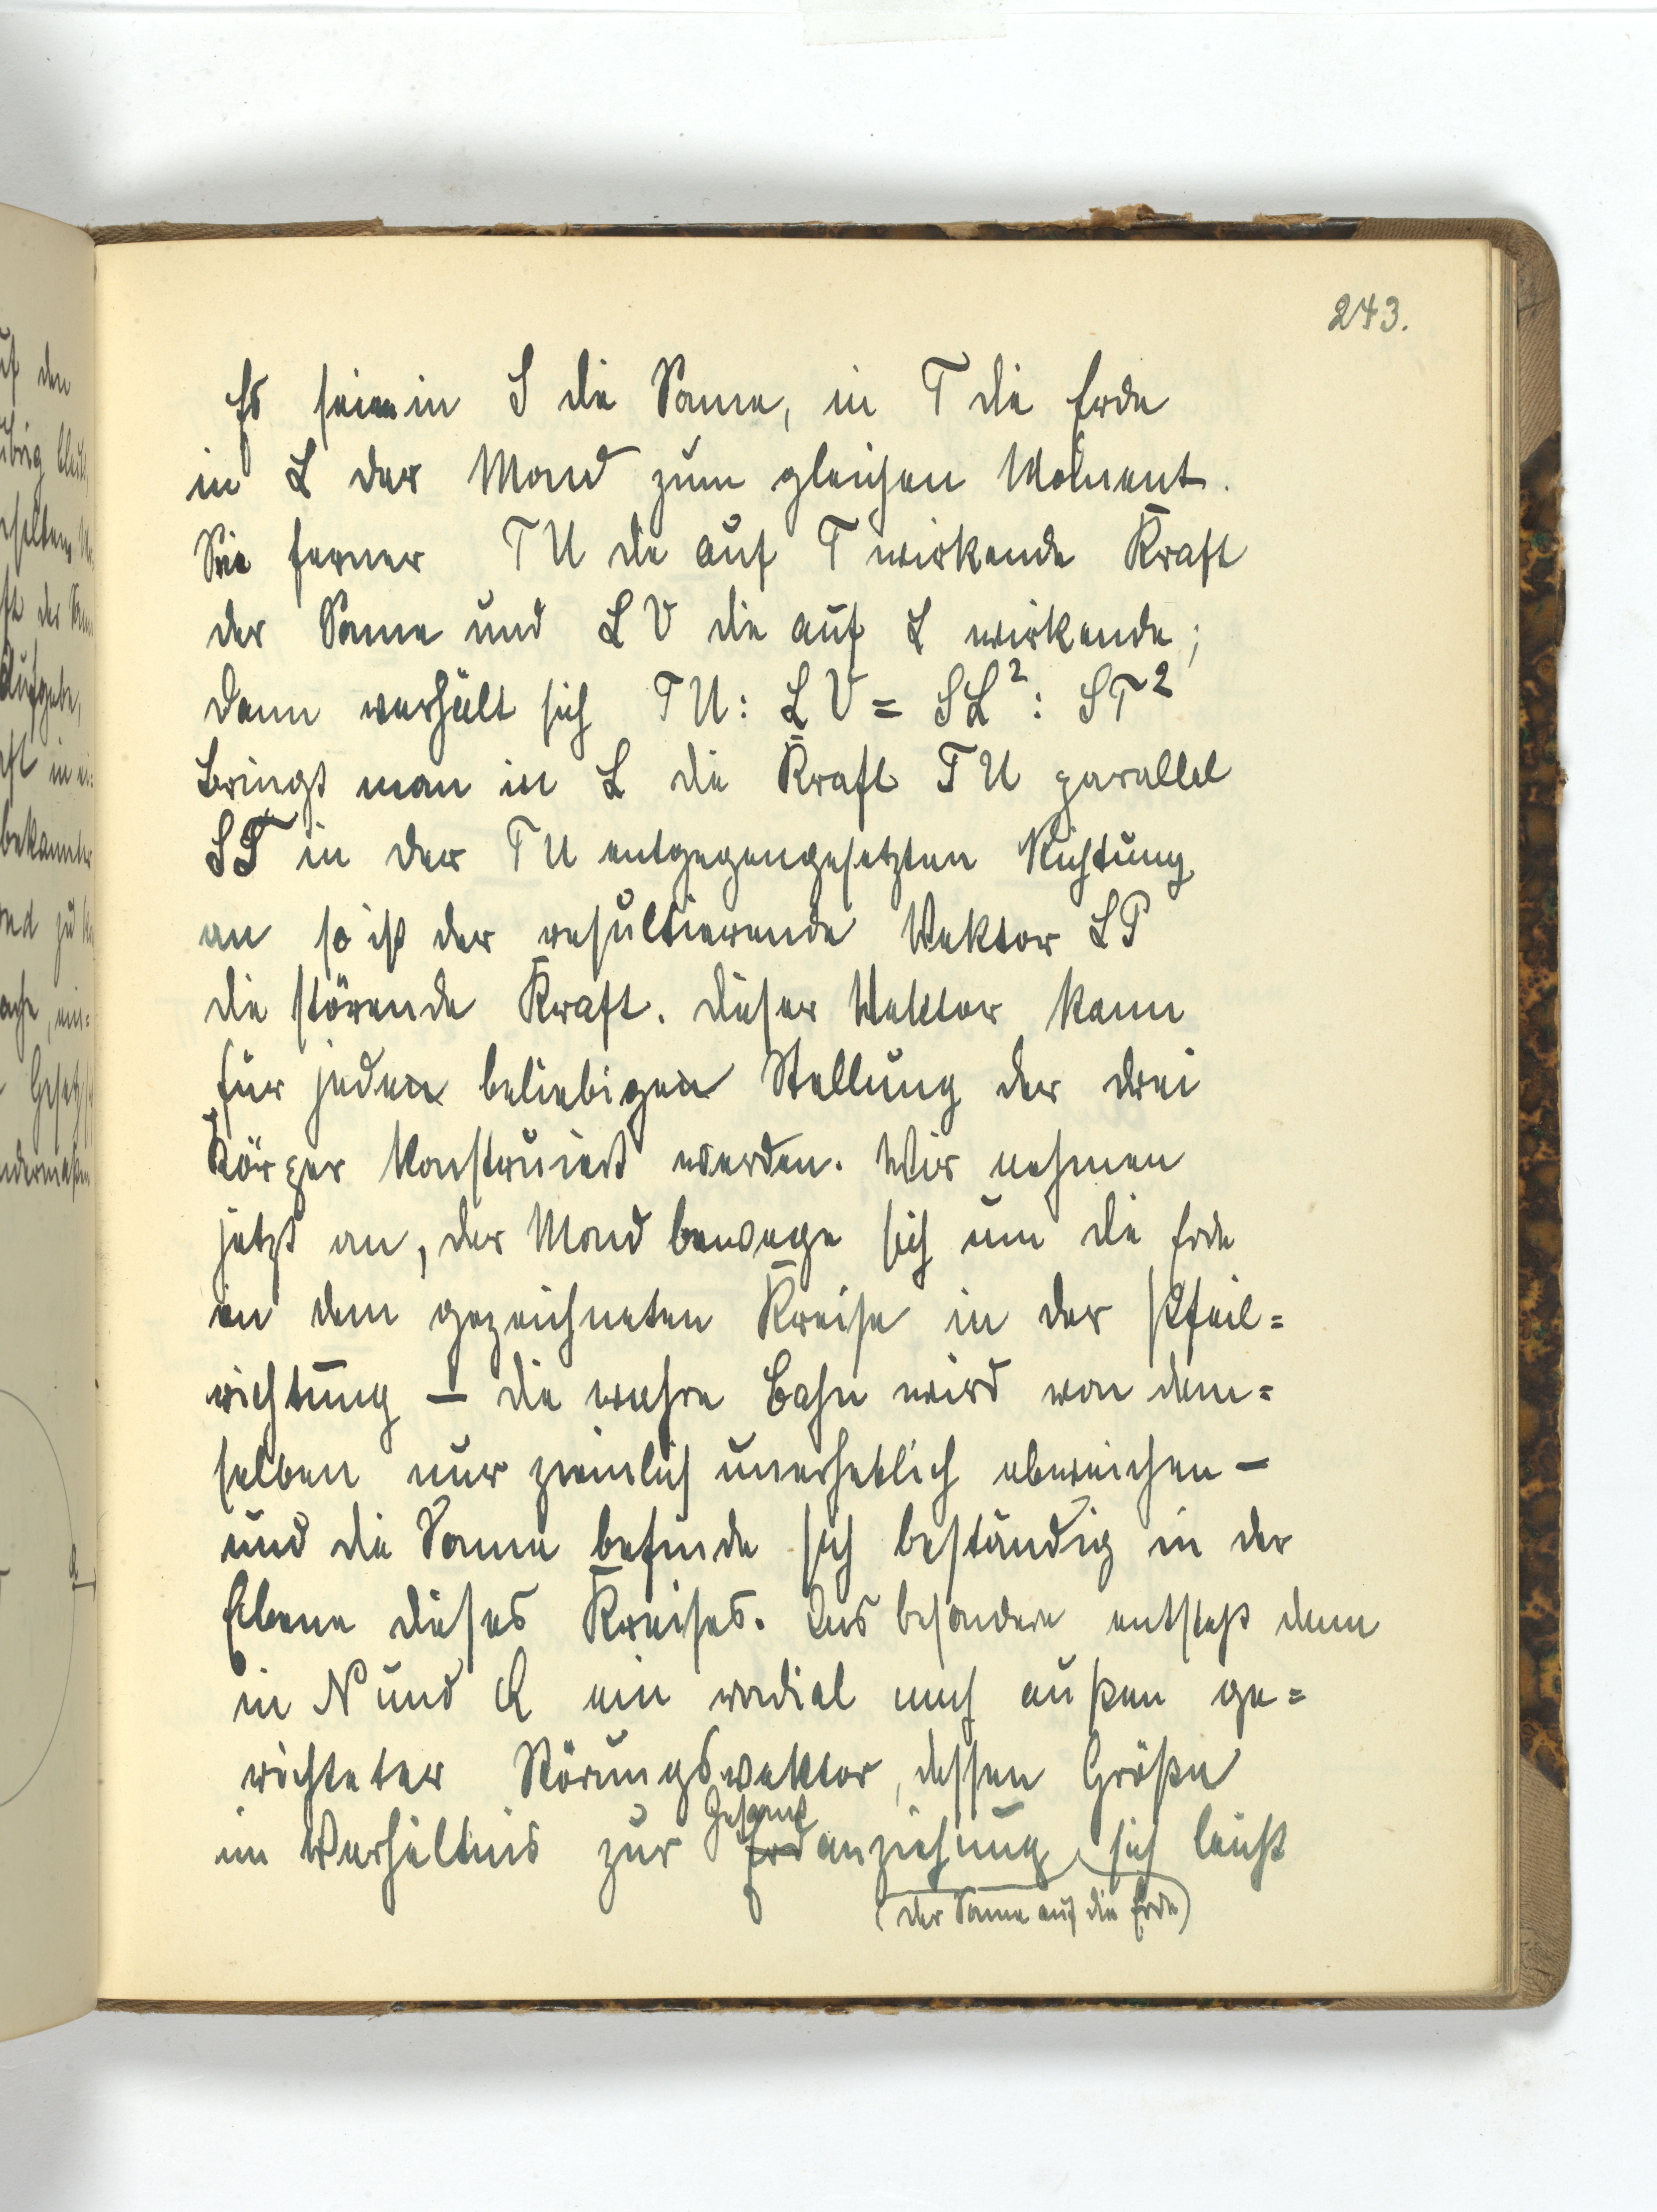 243.
Es sei in S die Sonne, in T die Erde
in L der Mond zum gleichen Moment.
Sei ferner TU die auf T wirkende Kraft
der Sonne und LV die auf L wirkende;
dann verhält sich TU : LV = SL² : ST²
Bringt man in L die Kraft TU parallel
ST in der TU entgegengesetzten Richtung
an so ist der resultierende Vektor LP
die störende Kraft. Dieser Vektor kann
für jeden beliebigen Stellung der drei
Körper konstruiert werden. Wir nehmen
jetzt an, der Mond bewege sich um die Erde
in dem gezeichneten Kreise in der Pfeil=
richtung – die wahre Bahn wird von dem=
selben nur ziemlich unerheblich abweichen –
und die Sonne befinde sich beständig in der
Ebene dieses Kreises. Insbesondere entsteht dann
in N und Q ein radial nach außen ge=
richteter Störungsvektor, dessen Größe
Gesamt
im Verhältnis zur Erdanziehung sich leicht
(der Sonne auf die Erde)
uf den
übrig bleibt,
selben
ft der
Aufgabe,
ft in ei=
bekannter
nd zu
ache, ein=
Gesetz
ndermaßen
Q